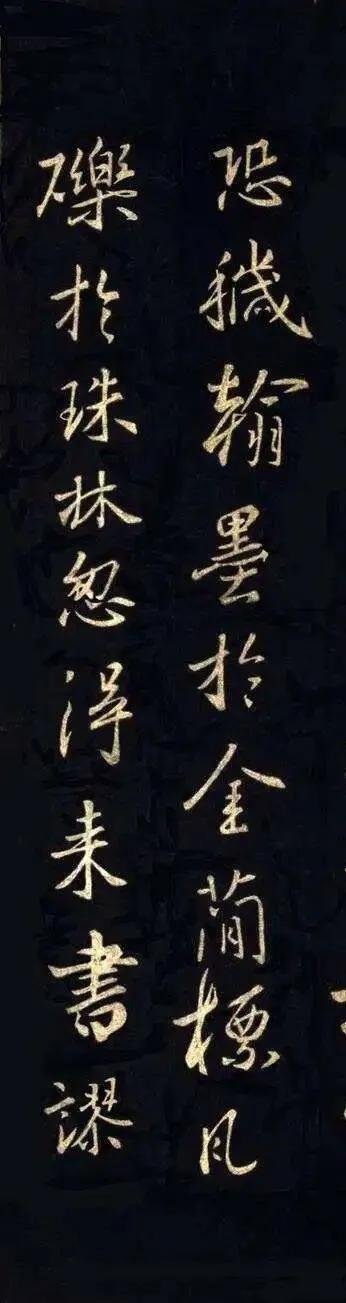 恐穢翰墨於金蕳標風
礫於珠林忽得来書謬